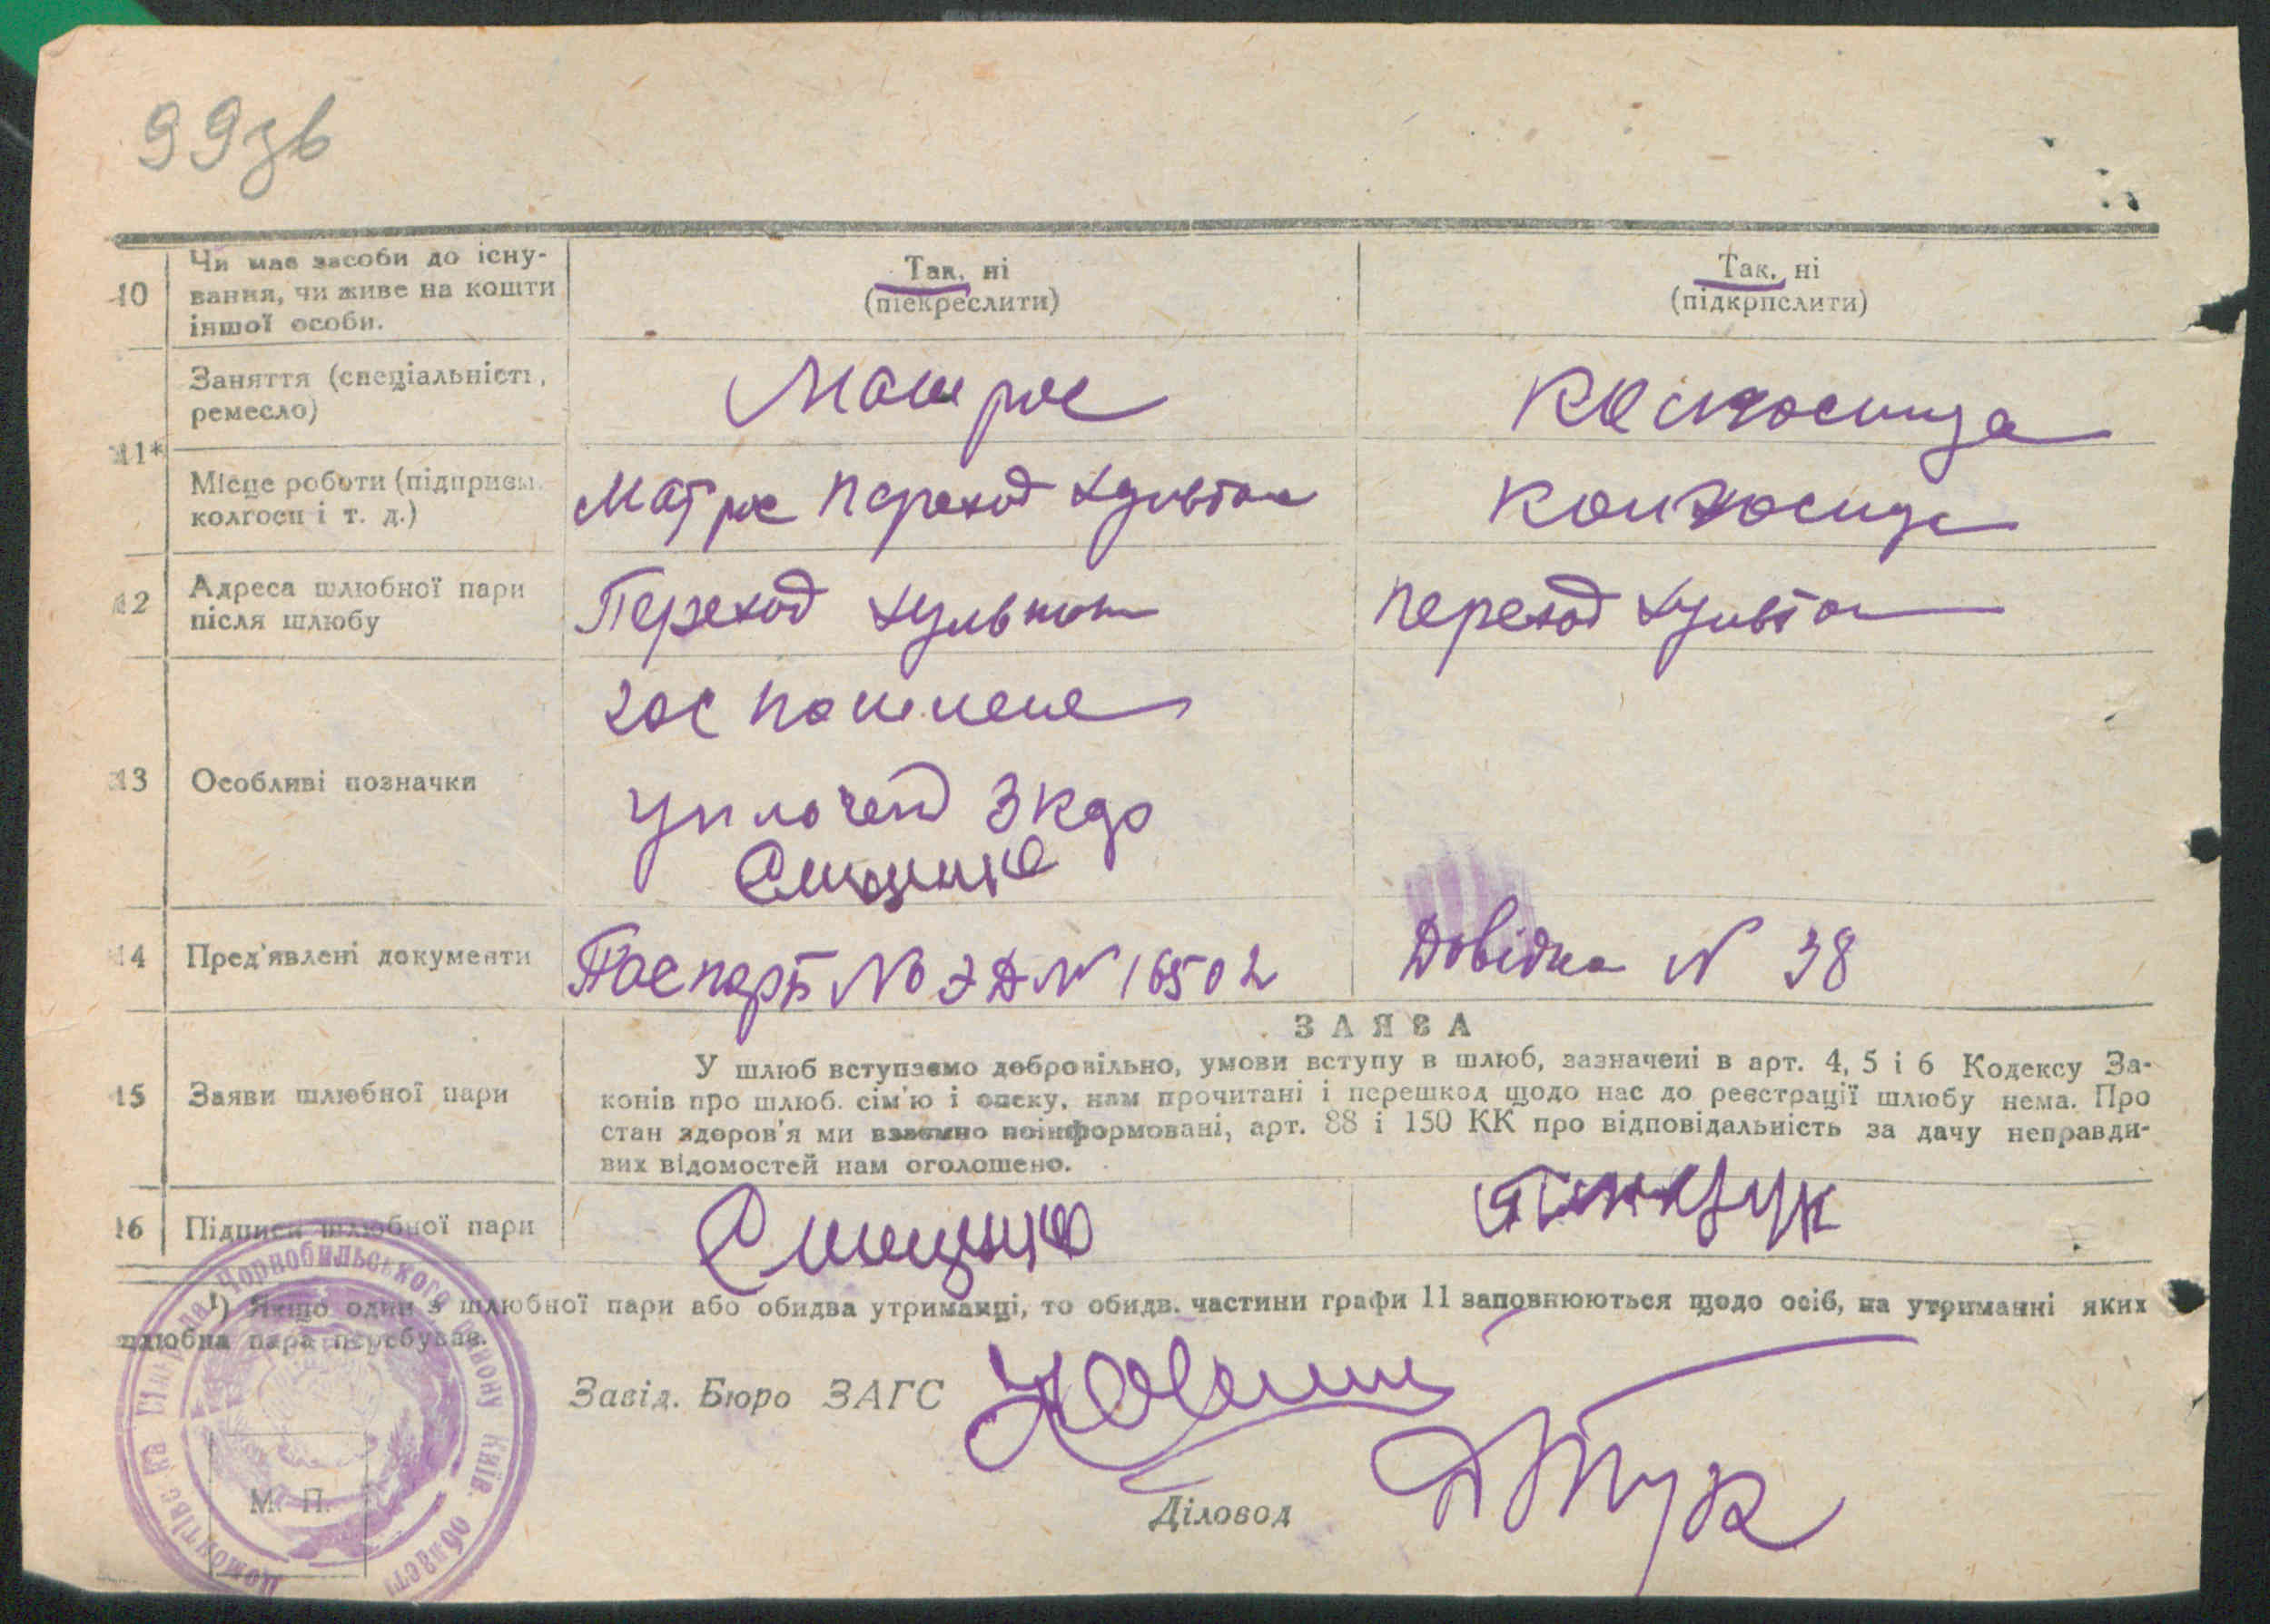 99зв
10 Чи має засоби до існу-
вання, чи живе на кошти
іншої особи.
Так, ні
(піекреслити)
Так, ні
(підкрпслити)
11*
Заняття (спеціальність,
ремесло)
Матрос
Колгосниця
Місце роботи (підприєм.
колгосп і т. д.)
Матрос Переход
Колхосниця
12 Адреса шлюбної пари
після шлюбу
Переход
переход
13 Особливі позначки
уплочено 3 кдр
14 Пред'явлені документи
Паспорт № ЭД № 16502
Довідка № 38
ЗАЯВА
15 Заяви шлюбної пари
У шлюб вступаємо добровільно, умови вступу в шлюб, зазначені в арт. 4, 5 і 6 Кодексу За-
конів про шлюб. сім'ю і опеку, нам прочитані і перешкод щодо нас до реєстрації шлюбу нема. Про
стан здоров'я ми взаємно поінформовані, арт. 88 і 150 КК про відповідальність за дачу неправди-
вих відомостей нам оголошено.
16 Підписи шлюбної пари
¹) Якщо один з шлюбної пари або обидва утриманці, то обидв. частини графи 11 заповнюються щодо осіб, на утриманні яких
шлюбна пара перебуває.
Завід. Бюро ЗАГС
М. П.
Діловод
Чорнобильського району Київ. області